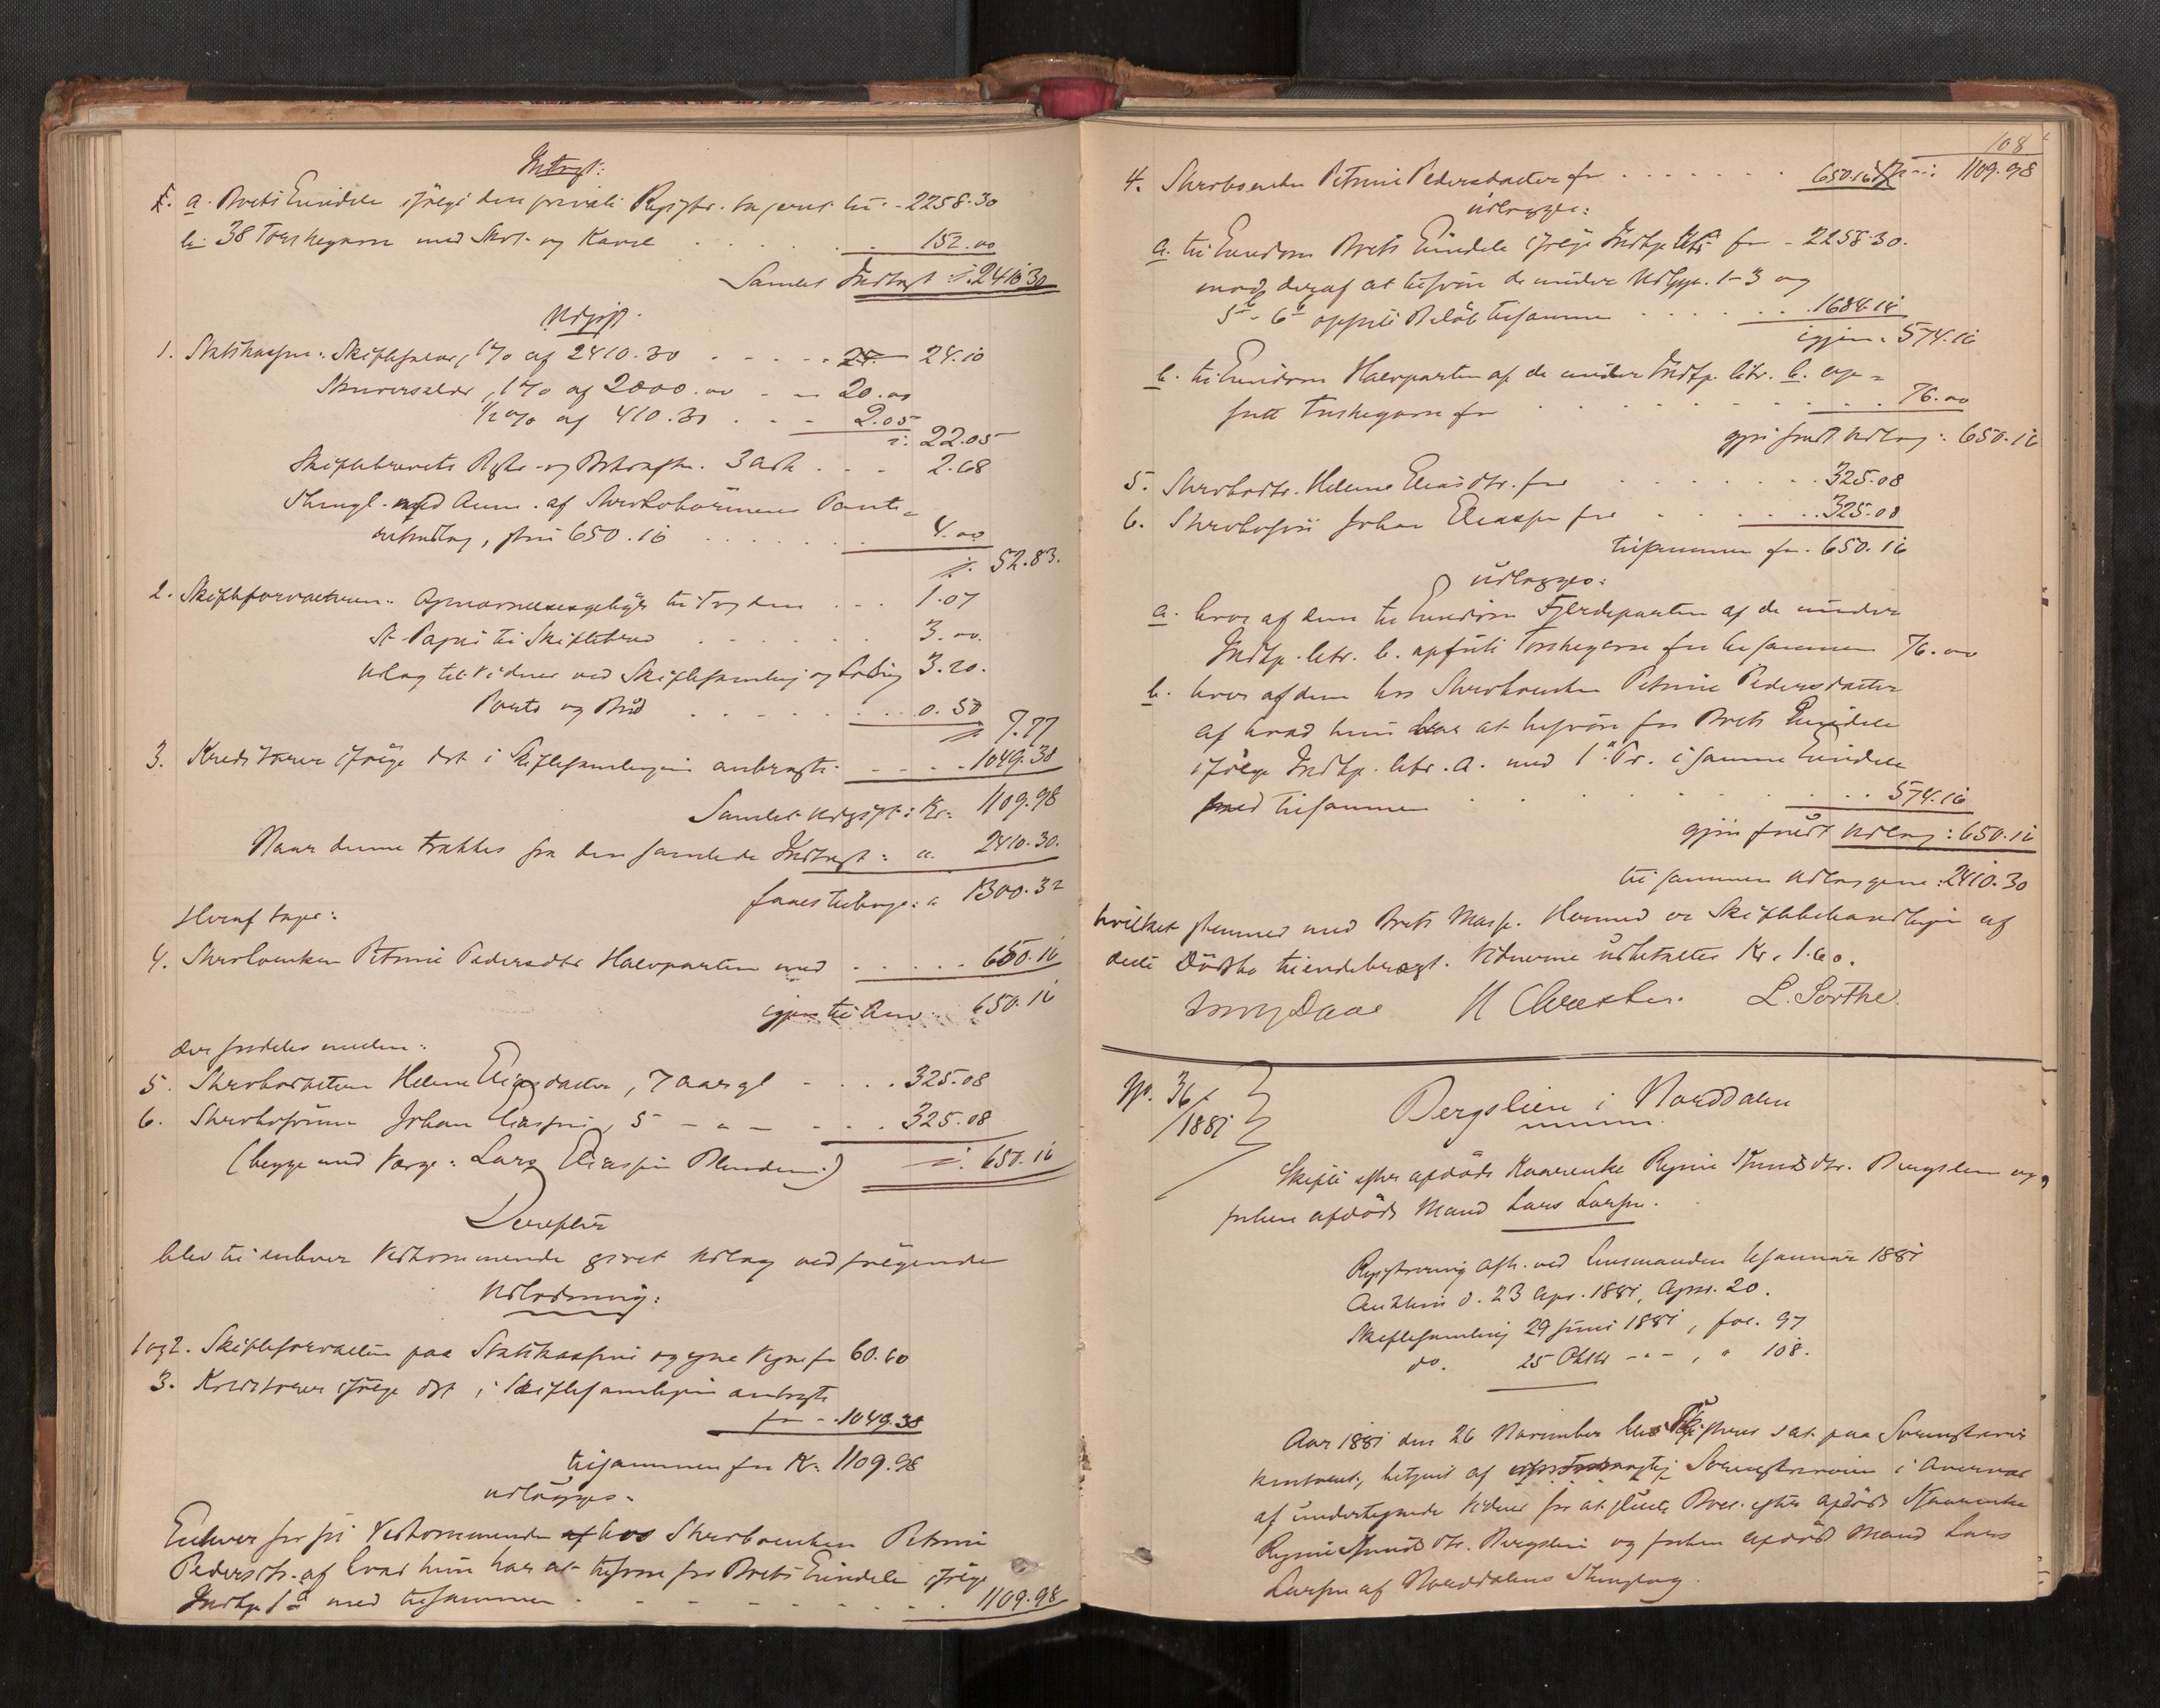 Indtægt:
1. a. Boets Eiendele ifølge den private Registr. tagseret til - 2258.30
b. 38 Torskegarn med Skot. og Kavl 152.00
Samlet Indtægt :/: 2410.30
Udgift.
1. Statskassen: Skifteafgift, 1% af 2410.30 24.10
Skriversalær, 1% af 2000.00 - - 20.00
1/2% af 410.30 . . - 2.05
:/: 22.05
Skiftebrevets Beskr.- og 3 Ark . . - 2.68
Thingl. med Ann. af Stervbobørnenes Pante-
, stor 650.16 4.00
:/: 52.83.
2. Skifteforvalteren: til 1.07
St. Papir til Skiftebrev 3.00.
Udlæg til Vidner ved Skiftesamling og 3.20.
Porto og Bud 0.50
:/: 7.77
3. Kreditorer ifølge det i Skiftesamlingen anbragte - - - 1049.38
Samlet Udgift: Kr. 1109.98
Naar denne trækkes fra den samlede Indtægt: " 2410.30.
faaes tilbage: " 1300.32
Heraf tager:
4. Stervboenken Petrine Pedersdtr Halvparten med 650.16
igjen til Arv 650.16
der fordeles mellem:
5. Stervbodatteren Helene Eliasdatter, 7 Aar gl - . . . 325.08
6. Stervbosønnen Johan Eliassen, 5 - " - - . . 325.08
(begge med Værge: Lars Eliassen Blindem.) :/: 650.16
Derefter
blev til enhver Vedkommende givet Udlæg ved følgende
Udlodning:
1 og 2. Skifteforvalteren paa Statskassens og egne Vegne for 60.60
3. Kreditorer ifølge det i Skiftesamlingen anbragte
for - . 1049.38
tilsammen for Kr. 1109.98
udlægges:
Enhver for sit Vedkommende hos Stervboenken Petrine
Pedersdtr. af hvad hun har at tilsvare for Boets Eiendele ifølge
Indtp. 1 a med tilsammen 1109.98
108
4. Stervboenken Petrine Pedersdatter for 650.16 1109.98
udlægges:
a. til Eiendom Boets Eiendele ifølge Indtp. litr. a for - 2258.30.
mod deraf at tilsvare de under Udgp. 1-3 og
5 b - 6 b opførte Beløb tilsammen 1684.14
igjen. 574.16
b. til Eiendom Halvparten af de under Indtp. litr. b. op-
førte Torskegarn for 76.00
gjør fuldt Udlæg: 650.16
5. Stervbodtr. Helene Eliasdtr. for 325.08
6. Stervbosøn Johan Eliassen for 325.08
tilsammen for. 650.16
udlægges:
a. hver af dem til Eiendom Fjerdeparten af de under
Indtp. litr. b. opførte Torskegarn for tilsammen 76.00
b. hver af dem hos Stervboenken Petrine Pedersdatter
af hvad hun har at tilsvare for Boets Eiendele
ifølge Indtp. litr. a. med 1ste Pr. i samme Eiendele
med tilsammen 574.16
gjør fuldt Udlæg: 650.16
tilsammen Udlægene: 2410.30
hvilket stemmer med Boets Masse. Hermed er Skiftebehandlingen af
dette Dødsbo tilendebragt. Vidnerne udbetaltes Kr. 1.60.
Daae L. Sørthe.
36/1881
Bergslien i Norddalen
Skifte efter afdøde Kaarenke Knudsdtr. Bergslien og
forhen afdøde Mand Lars Larsen.
Registrering afh. ved Lensmanden Januar 1881
Auktion d. 23 Apr. 1881, 20.
Skiftesamling 29 Juni 1881, fol. 97
do. 25 Oktbr - " - , " 108.
Aar 1881 den 26 November blev Skifteret sat paa Sorenskriver
kontoret, betjent af Sorenskriveren i
af undertegnede Vidner for at slutte Boet efter afdøde Kaarenke
Knudsdtr. Bergslien og forhen afdøde Mand Lars
Larsen af Norddalens Thinglag.